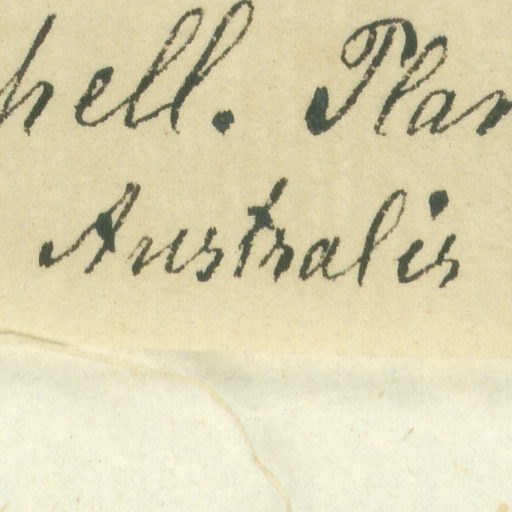 hell. Plan
Australis